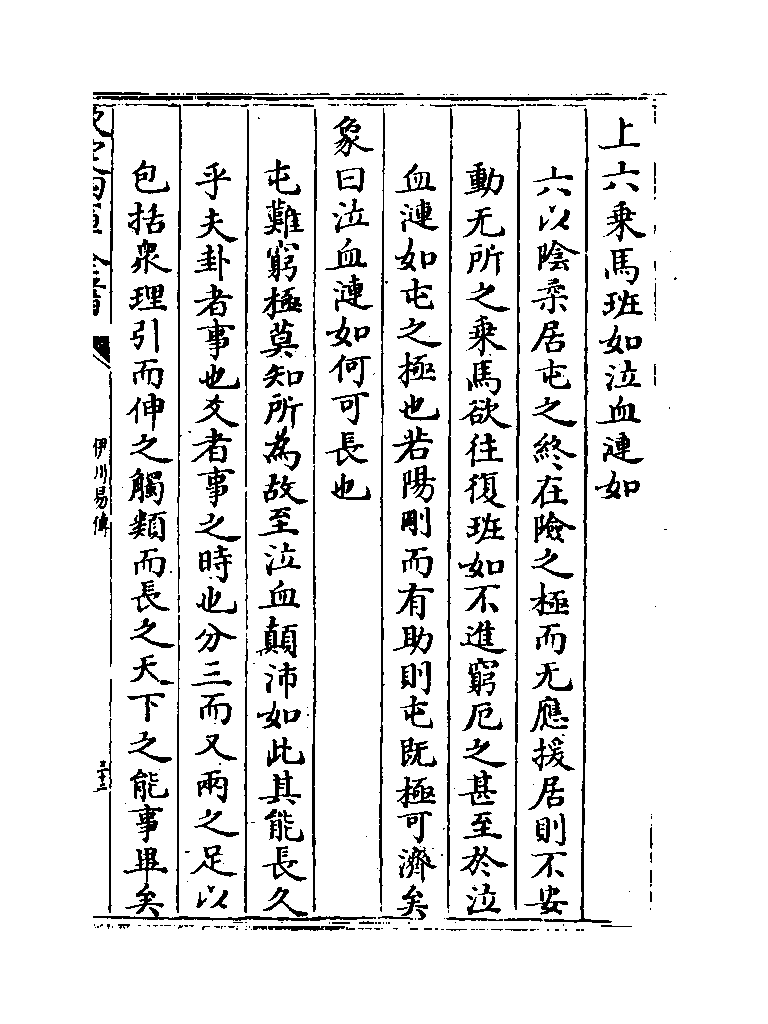 上六乘馬班如泣血漣如
六以陰柔居屯之終在險之極而无應援居則不安
動无所之乘馬欲往復班如不進窮厄之甚至於泣
血漣如屯之極也若陽剛而有助則屯既極可濟矣
象曰泣血漣如何可長也
屯難窮極莫知所為故至泣血顛沛如此其能長久
乎夫卦者事也爻者事之時也分三而又兩之足以
包括衆理引而伸之觸類而長之天下之能事畢矣
伊川易傳